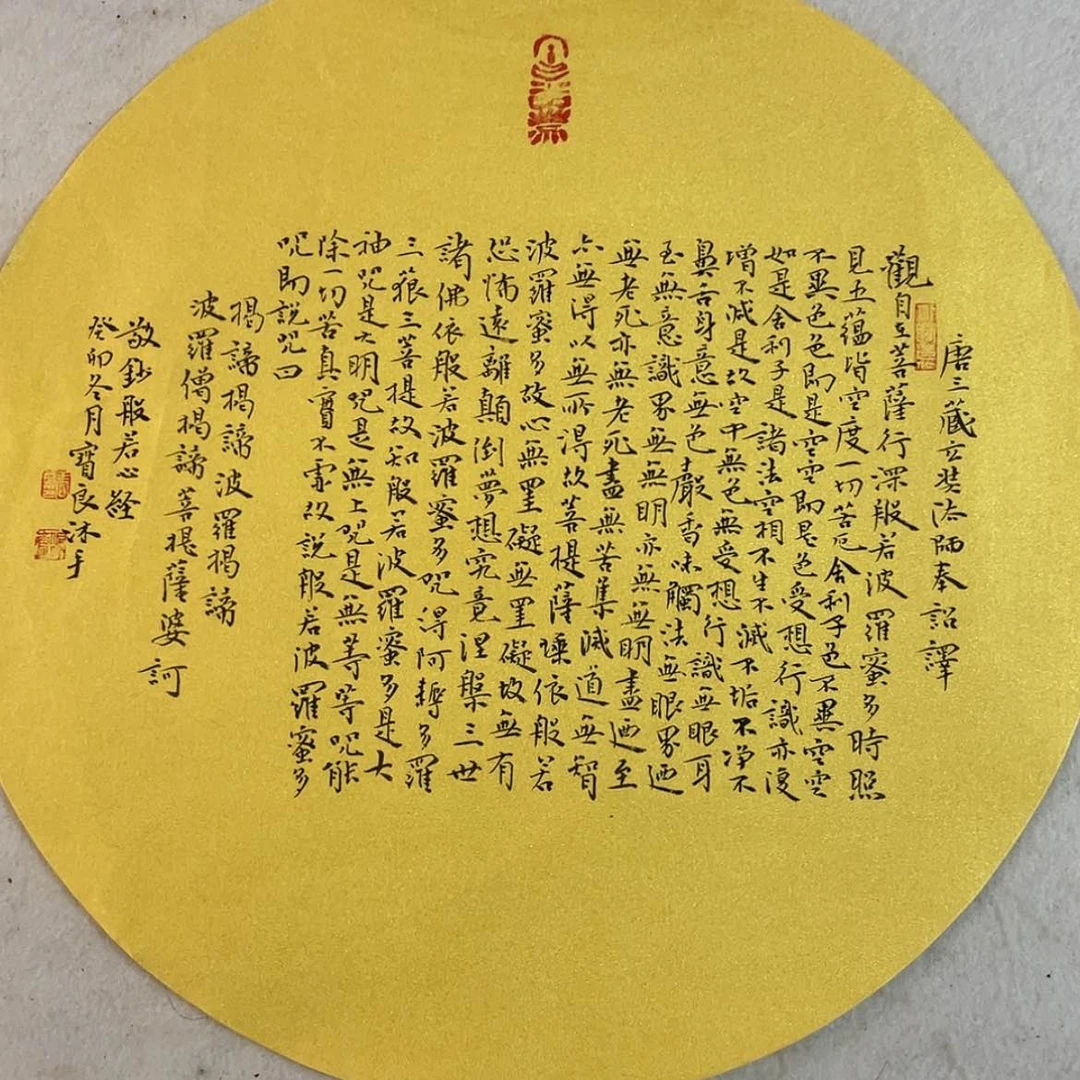 唐三藏玄奘法師奉詔譯
觀自在菩薩行深般若波羅蜜多時照
見五蘊皆空度一切苦厄舍利子色不異空空
不異色色即是空空即是色受想行識亦復
如是舍利子是諸法空相不生不滅不垢不净不
增不減是故空中無色無受想行識無眼耳
鼻舌身意無色聲香味觸法無眼界迺
至無意識界無無明亦無無明盡迺至
無老死亦無老死盡無苦集滅道無智
亦無得以無所得故菩提薩埵依般若
波羅蜜多故心無罣礙無罣礙故無有
恐怖遠離顛倒夢想究竟涅槃三世
諸佛依般若波羅蜜多呪得阿耨多羅
三藐三菩提故知般若波羅蜜多是大
神呪是大明呪是無上呪是無等等呪能
除一切苦真實不虛故說般若波羅蜜多
呪即說呪曰
揭諦揭諦波羅揭諦
波羅僧揭諦菩提薩婆訶
敬鈔般若心経
癸卯冬月寶良沐手